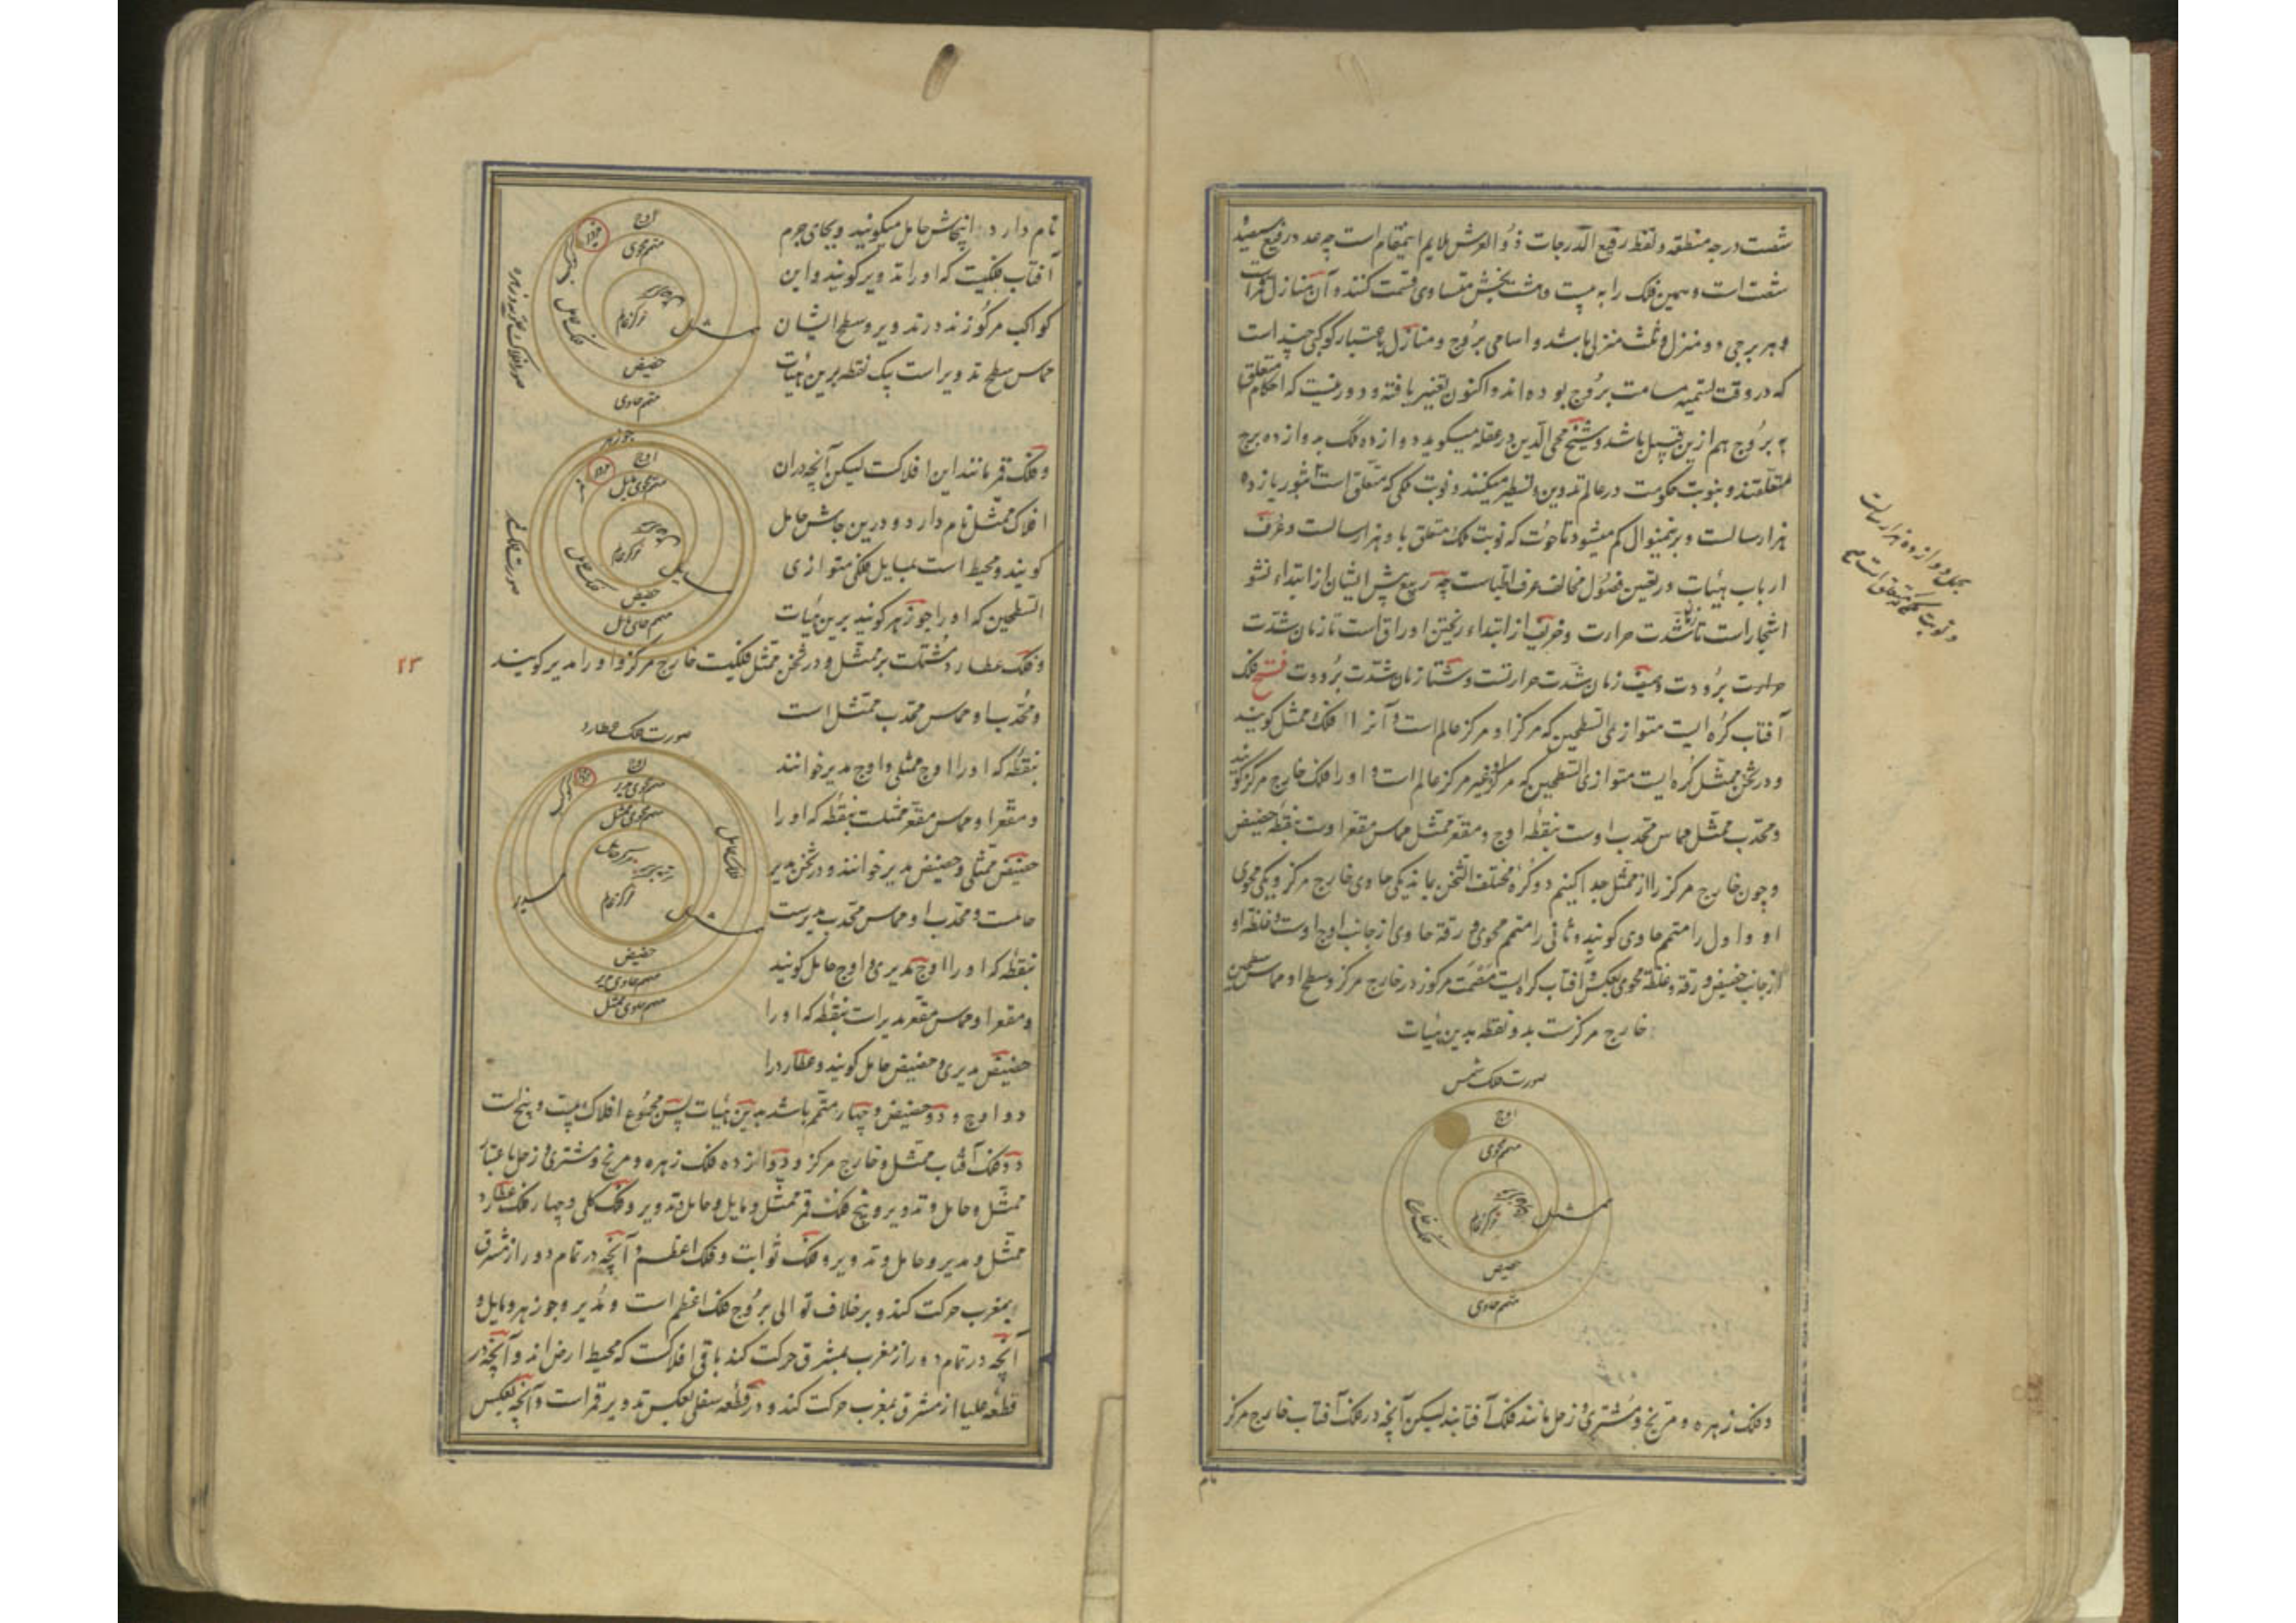 شصت درجه منطقه و لفظ رفیع الدرجات ذو العرش ملایم اینمقام است چه عدد رفیع سیصد و
شصت است و همین فلک را به بیست و هشت بخش متساوی قسمت کنند و آن منازل قمر است
و هر برجی دو منزل و ثلث منزلی باشد و اسامی بروج و منازل باعتبار کوکبی چند است
که در وقت تسمیه مسامت بروج بوده اند و اکنون تغییر یافته و دور نیست که احکام متعلق
ببروج هم ازین قبیل باشد و شیخ محی الدین در عقله میگوید دوازده ملک بدوازده برج
متعلقند و بنوبت حکومت در عالم تدوین و تسطیر میکنند و نوبت ملکی که متعلق است بثور یازده
هزار سالست و برینمنوال کم میشود تا حوت که نوبت ملک متعلق باو هزار سالست و عرف
ارباب هیئات در تعیین فصول مخالف عرف اطباست چه ربیع پیش ایشان از ابتداء نشو
اشجار است تا زمان شدت حرارت و خریف از ابتداء ریختن اوراق است تا زمان شدت
حرارت برودت و صیف زمان شدت حرارتست و شتا زمان شدت برودت فتح فلک
آفتاب کره ایست متوازی السطحین که مرکز او مرکز عالم است و آنرا فلک ممثل گویند
و در ثخن ممثل کره ایست متوازی السطحین که مرکز او غیر مرکز عالم است و او را فلک خارج مرکز گویند
و محدب ممثل مماس محدب اوست بنقطه اوج و مقعر ممثل مماس مقعر اوست بنقطه حضیض
و چون خارج مرکز را از ممثل جدا کنیم دو کره مختلف الثخن بماند یکی حاوی خارج مرکز و یکی محوی
او و اول را متمم حاوی گویند و ثانی را متمم محوی و رقة حاوی از جانب اوج اوست و غلظه او
از جانب حضیض و رقة و غلظة محوی بعکس و آفتاب کره ایست مصمت مرکوز در خارج مرکز و سطح او مماس سطحین
خارج مرکزست بدو نقطه بدین هیئات
صورت فلک شمس
اوج
متمم محوی
مرکز عالم
ممثل
حضیض
متمم حاوی
و فلک زهره و مریخ و مشتری و زحل مانند فلک آفتابند لیکن آنچه در فلک آفتاب خارج مرکز
نام
بحمل دوازده هزار سالست
و نوبت ملکی که متعلق است
نام دارد اینجاش حامل میگویند و بجای جرم
آفتاب فلکیست که او را تدویر گویند و این
کواکب مرکوزند در تدویر و سطح ایشان
مماس سطح تدویر است بیک نقطه برین هیئات
اوج
متمم محوی
تدویر
فلک حامل
مرکز عالم
ممثل
حضیض
متمم حاوی
و فلک قمر مانند این افلاکست لیکن آنچه در آن
افلاک ممثل نام دارد و درین جاش حامل
گویند و محیط است بمایل فلکی متوازی
السطحین که او را جوزهر گویند برین هیئات
جوزهر
اوج
متمم محوی مایل
تدویر
فلک حامل
مرکز عالم
مایل
حضیض
متمم حاوی مایل
صورت فلک قمر
و فلک عطارد مشتملست بر ممثل و در ثخن ممثل فلکیست خارج مرکز و او را مدیر گویند
۲۳
و محدب او مماس محدب ممثل است
بنقطه که او را اوج ممثلی و اوج مدیر خوانند
و مقعر او مماس مقعر ممثلست بنقطه که او را
حضیض ممثلی و حضیض مدیر خوانند و در ثخن مدیر
حاملست و محدب او مماس محدب مدیرست
بنقطه که او را اوج مدیری و اوج حامل گویند
و مقعر او مماس مقعر مدیر است بنقطه که او را
حضیض مدیری و حضیض حامل گویند و عطارد را
صورت فلک عطارد
اوج
متمم محوی مدیر
متمم محوی ممثل
تدویر
فلک حامل
مرکز حامل
مرکز مدیر
مرکز عالم
مدیر
ممثل
حضیض
متمم حاوی مدیر
متمم حاوی ممثل
دو اوج و دو حضیض و چهار متمم باشد بدین هیئات پس مجموع افلاک بیست و پنج است
دو فلک آفتاب ممثل و خارج مرکز و دوازده فلک زهره و مریخ و مشتری و زحل باعتبار
ممثل و حامل و تداویر و پنج فلک قمر ممثل و مایل و حامل و تدویر و فلک کلی و چهار فلک عطارد
ممثل و مدیر و حامل و تدویر و فلک ثوابت و فلک اعظم و آنچه در تمام دور از مشرق
بمغرب حرکت کند و بر خلاف توالی بروج فلک اعظم است و مدیر و جوزهر و مایل و
آنچه در تمام دور از مغرب بمشرق حرکت کند باقی افلاکست که محیط ارض اند و آنچه در
قطعه علیا از مشرق بمغرب حرکت کند و در قطعه سفلی بعکس تدویر قمر است و آنچه بعکس